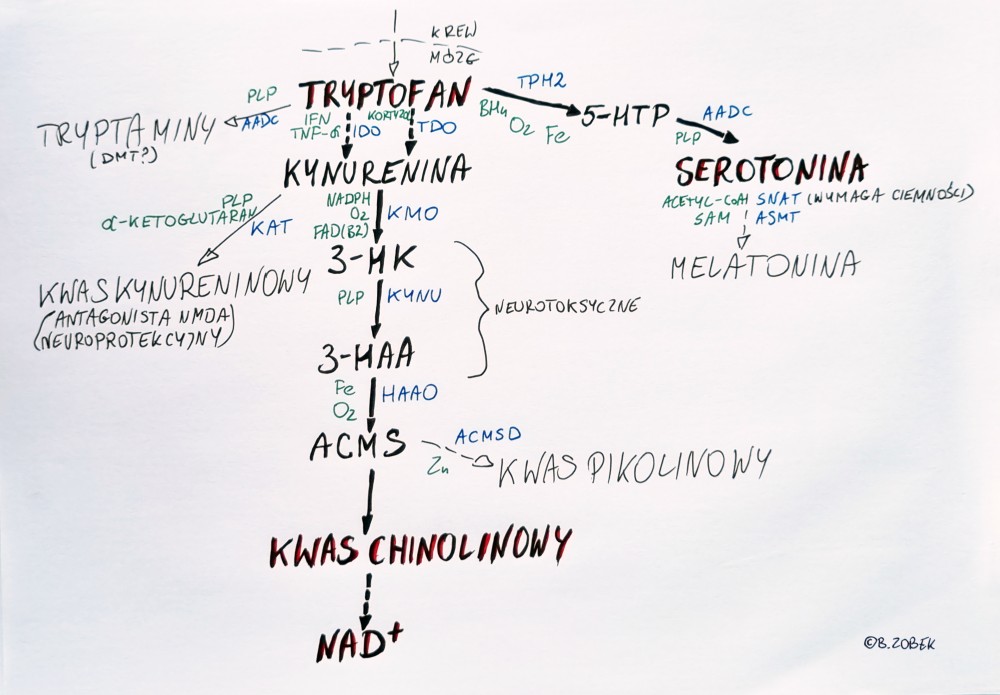 KREW
MÓZG
TRYPTOFAN
TPH2
BH4
O2
Fe
5-HTP
AADC
PLP
SEROTONINA
ACETYL-CoA SNAT (WYMAGA CIEMNOŚCI)
SAM ASMT
MELATONINA
PLP
AADC
TRYPTAMINY
(DMT?)
IFN
TNF-α
IDO
KORTYZOL
TDO
KYNURENINA
PLP
α-KETOGLUTARAN
KAT
KWAS KYNURENINOWY
(ANTAGONISTA NMDA)
(NEUROPROTEKCYJNY)
NADPH
O2
FAD(B2)
KMO
3-HK
PLP
KYNU
NEUROTOKSYCZNE
3-HAA
Fe
O2
HAAO
ACMS
ACMSD
Zn
KWAS PIKOLINOWY
KWAS CHINOLINOWY
NAD+
©B.ZOBEK